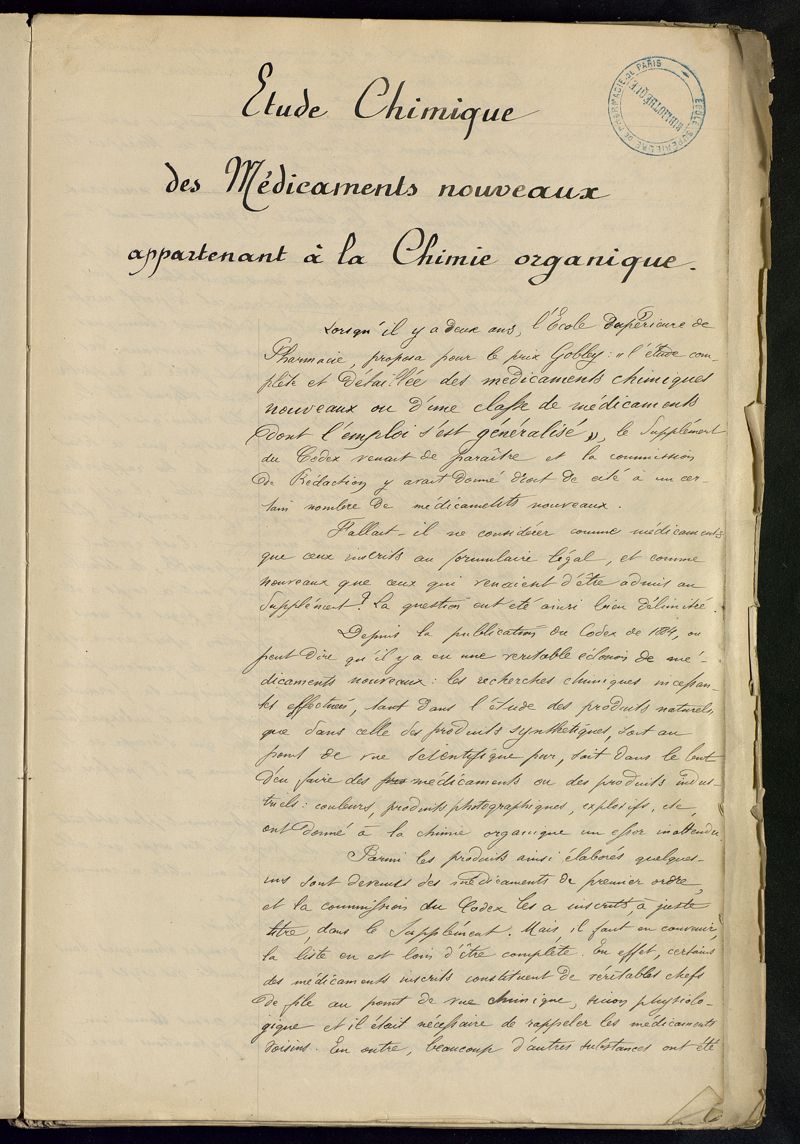 Etude Chimique
des Médicaments nouveaux
appartenant à la Chimie organique.
ÉCOLE SUPÉRIEURE DE PHARMACIE DE PARIS
BIBLIOTHÈQUE
Lorsqu'il y a deux ans, l'École Supérieure de
Pharmacie, proposa pour le prix Gobley : "l'étude com-
plète et détaillée des médicaments chimiques
nouveaux ou d'une classe de médicaments
dont l'emploi s'est généralisé", le Supplément
du Codex venait de paraître et la commission
de Rédaction y avait donné droit de cité à un cer-
tain nombre de médicaments nouveaux.
Fallait-il ne considérer comme médicaments
que ceux inscrits au formulaire légal, et comme
nouveaux que ceux qui venaient d'être admis au
Supplément? La question eut été ainsi bien délimité.
Depuis la publication du Codex de 1884, on
peut dire qu'il y a eu une veritable éclosion de mé-
dicaments nouveaux : les recherches chimiques incessan-
tes effectuées, tant dans l'étude des produits naturels,
que dans celle des produits synthétiques, soit au
point de vue scientifique pur, soit dans le but
d'en faire des médicaments ou des produits indus-
triels : couleurs, produits photographiques, explosifs, etc,
ont donné à la chimie organique un essor inattendu.
Parmi les produits ainsi élaborés quelques-
uns sont devenus des médicaments de premier ordre,
et la commission du Codex les a inscrits, à juste
titre, dans le Supplément. Mais, il faut en convenir,
la liste en est loin d'être complète. En effet, certains
des médicaments inscrits constituent de véritables chefs
de file au point de vue chimique, sinon physiolo-
gique et il était nécessaire de rappeler les médicaments
voisins. En outre, beaucoup d'autres substances ont été